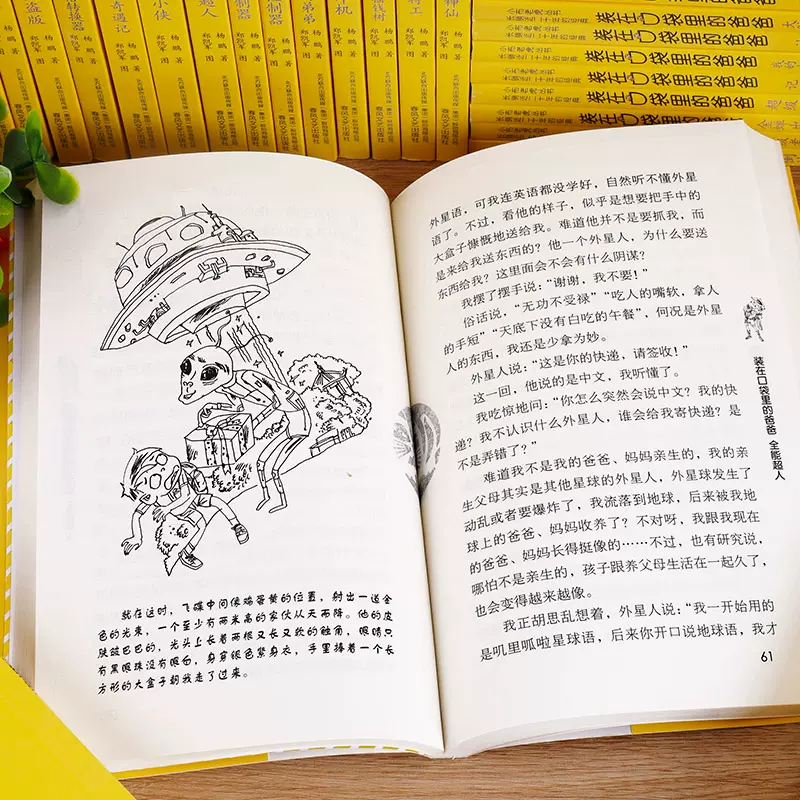 盗版
转换器
奇遇记
小侠
超人
制器
制器
弟弟
计机
钱树
特工
神仙
杨鹏 郑凯军 图
春风文艺出版社
小布老虎丛书
长销近二十年的经典
装在口袋里的爸爸
小布老虎丛书
长销近二十年的经典
装在口袋里的爸爸
小布老虎丛书
长销近二十年的经典
装在口袋里的爸爸
小布老虎丛书
长销近二十年的经典
装在口袋里的爸爸
就在这时，飞碟中间像鸡蛋黄的位置，射出一道金
色的光束，一个至少有两米高的家伙从天而降。他的皮
肤皱巴巴的，光头上长着两根又长又软的触角，眼睛只
有黑眼珠没有眼白，身穿银色紧身衣，手里捧着一个长
方形的大盒子朝我走了过来。
外星语，可我连英语都没学好，自然听不懂外星
语了。不过，看他的样子，似乎是想要把手中的
大盒子慷慨地送给我。难道他并不是要抓我，而
是来给我送东西的？他一个外星人，为什么要送
东西给我？这里面会不会有什么阴谋？
我摆了摆手说：“谢谢，我不要！”
俗话说，“无功不受禄”“吃人的嘴软，拿人
的手短”“天底下没有白吃的午餐”，何况是外星
人的东西，我还是少拿为妙。
外星人说：“这是你的快递，请签收！”
这一回，他说的是中文，我听懂了。
我吃惊地问：“你怎么突然会说中文？我的快
递？我不认识什么外星人，谁会给我寄快递？是
不是弄错了？”
难道我不是我的爸爸、妈妈亲生的，我的亲
生父母其实是其他星球的外星人，外星球发生了
动乱或者要爆炸了，我流落到地球，后来被我地
球上的爸爸、妈妈收养了？不对呀，我跟我现在
的爸爸、妈妈长得挺像的……不过，也有研究说，
哪怕不是亲生的，孩子跟养父母生活在一起久了，
也会变得越来越像。
我正胡思乱想着，外星人说：“我一开始用的
是叽里呱啦星球语，后来你开口说地球语，我才
装在口袋里的爸爸 全能超人
61